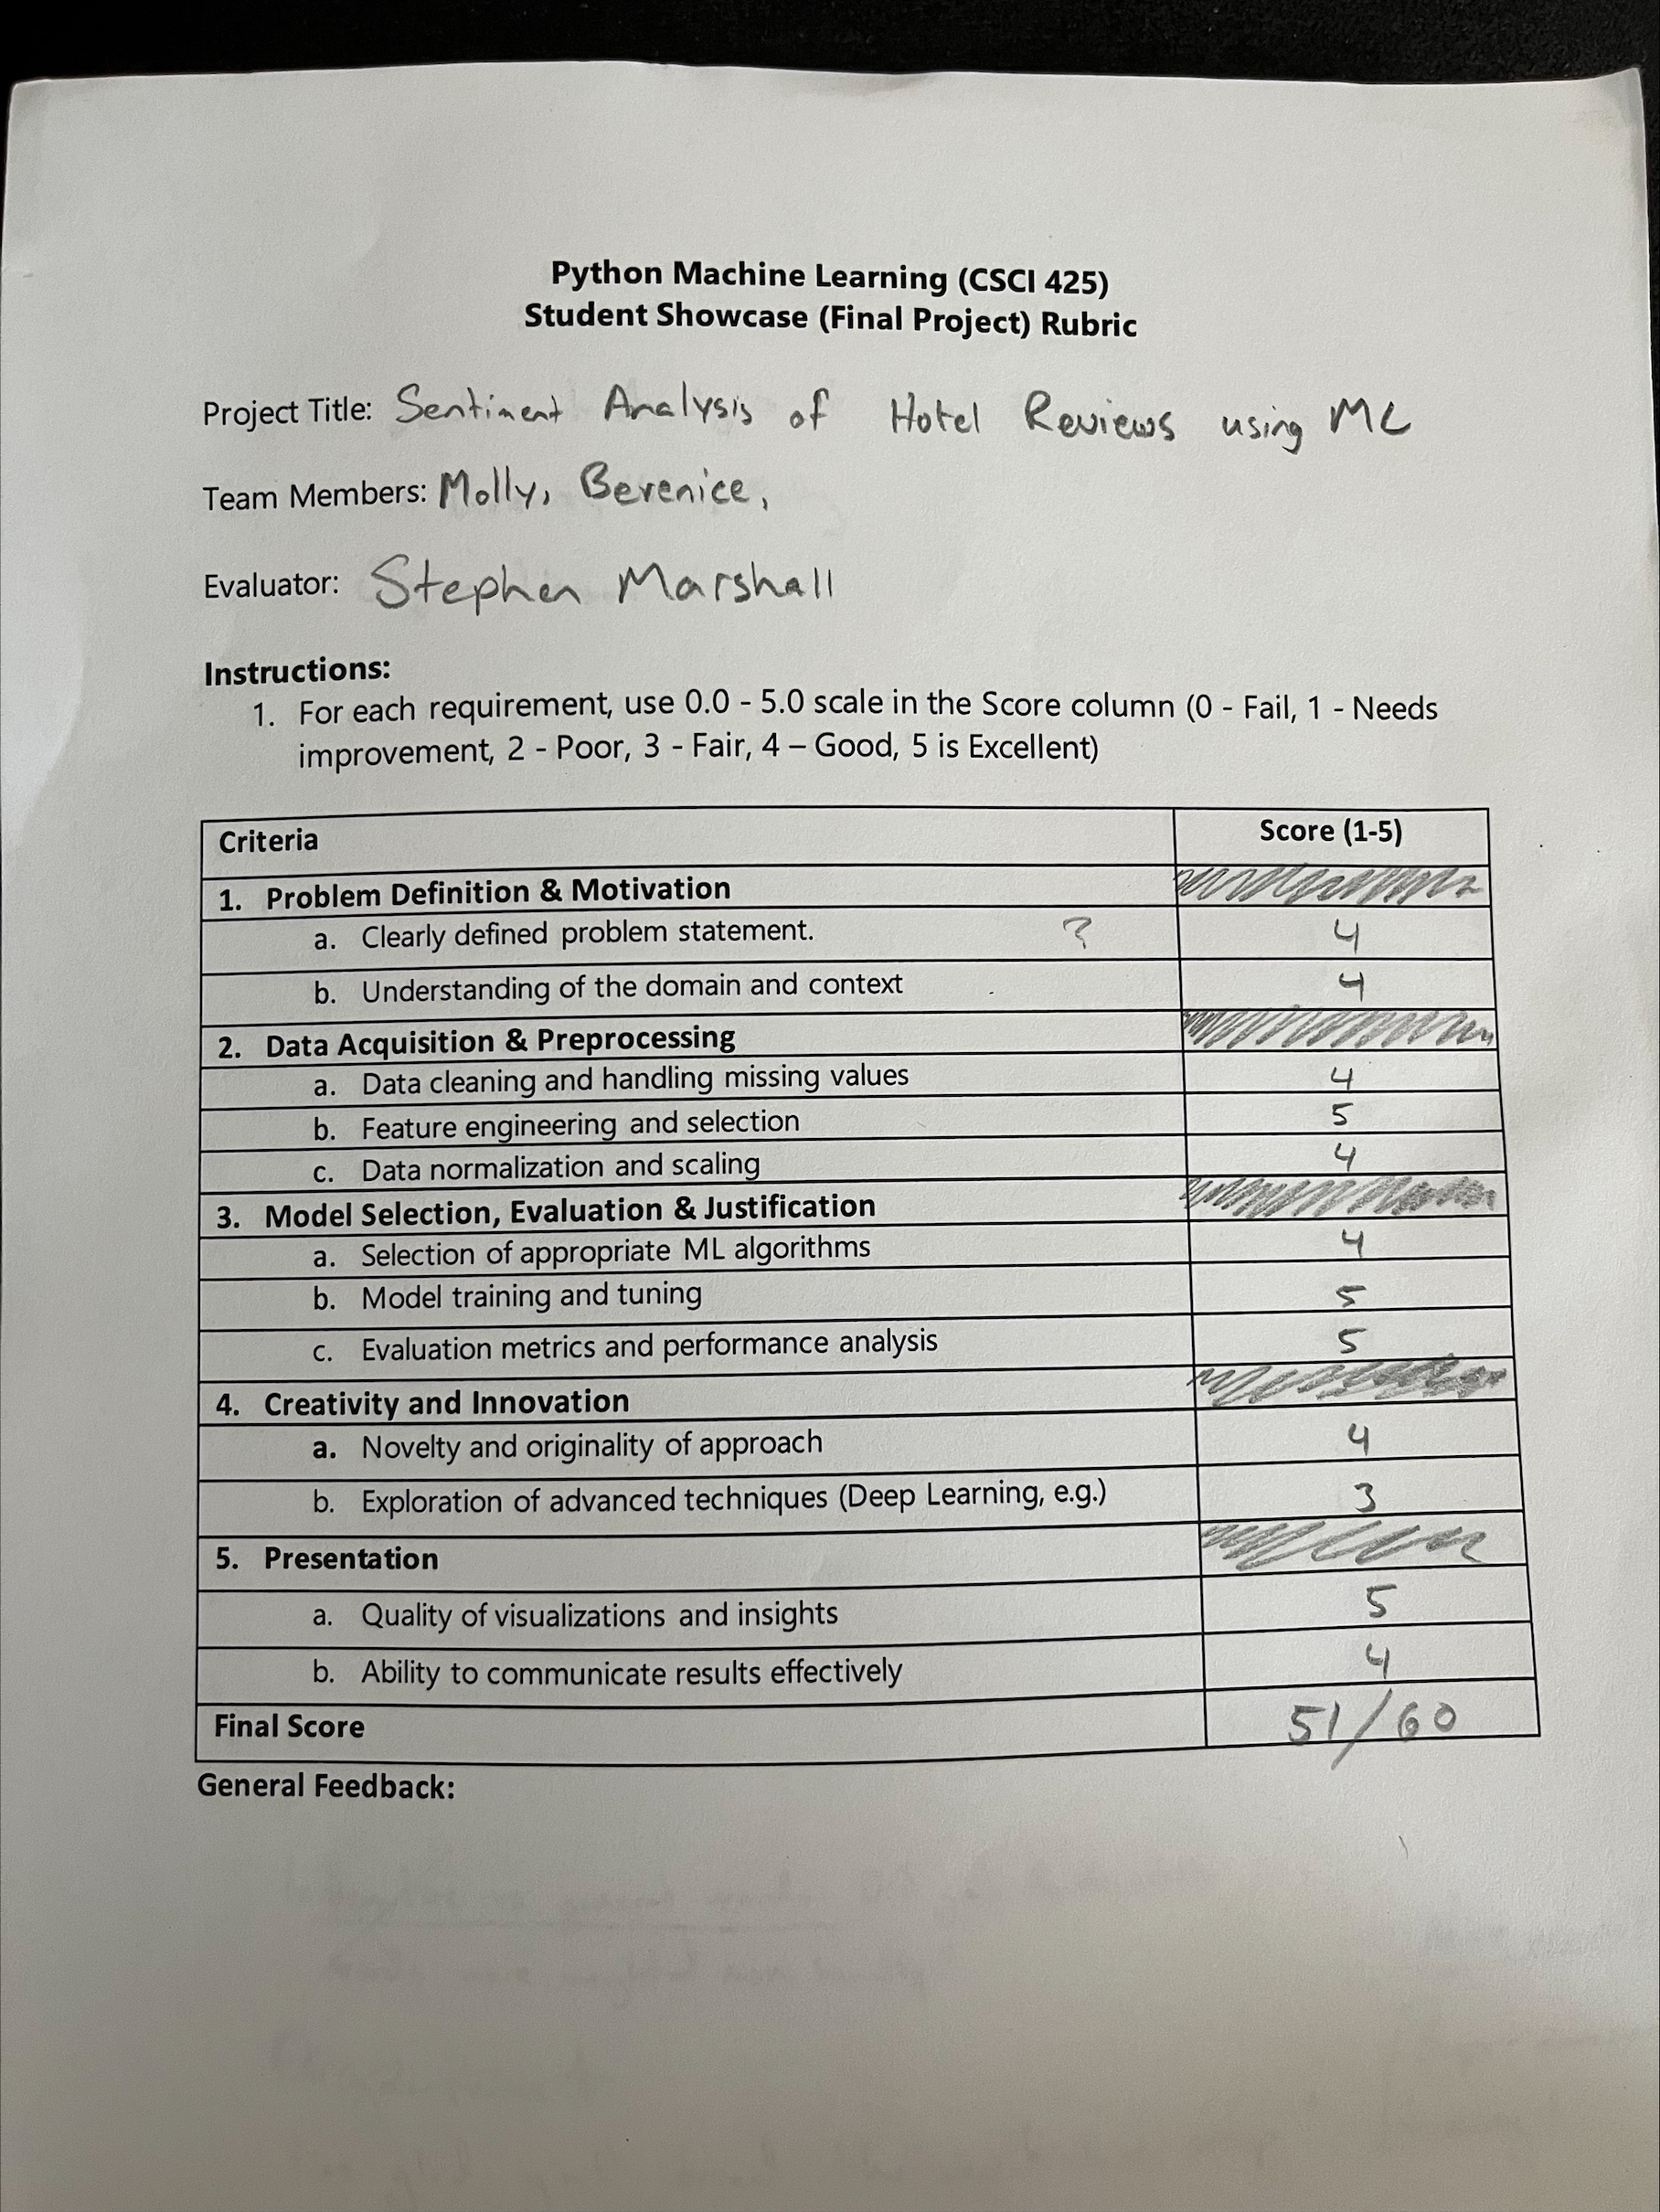 Python Machine Learning (CSCI 425)
Student Showcase (Final Project) Rubric
Project Title: Sentiment Analysis of Hotel Reviews using ML
Team Members: Molly, Berenice,
Evaluator: Stephen Marshall
Instructions:
1. For each requirement, use 0.0 - 5.0 scale in the Score column (0 - Fail, 1 - Needs
improvement, 2 - Poor, 3 - Fair, 4 – Good, 5 is Excellent)
Criteria Score (1-5)
1. Problem Definition & Motivation
a. Clearly defined problem statement. ? 4
b. Understanding of the domain and context 4
2. Data Acquisition & Preprocessing
a. Data cleaning and handling missing values 4
b. Feature engineering and selection 5
c. Data normalization and scaling 4
3. Model Selection, Evaluation & Justification
a. Selection of appropriate ML algorithms 4
b. Model training and tuning 5
c. Evaluation metrics and performance analysis 5
4. Creativity and Innovation
a. Novelty and originality of approach 4
b. Exploration of advanced techniques (Deep Learning, e.g.) 3
5. Presentation
a. Quality of visualizations and insights 5
b. Ability to communicate results effectively 4
Final Score 51/60
General Feedback: